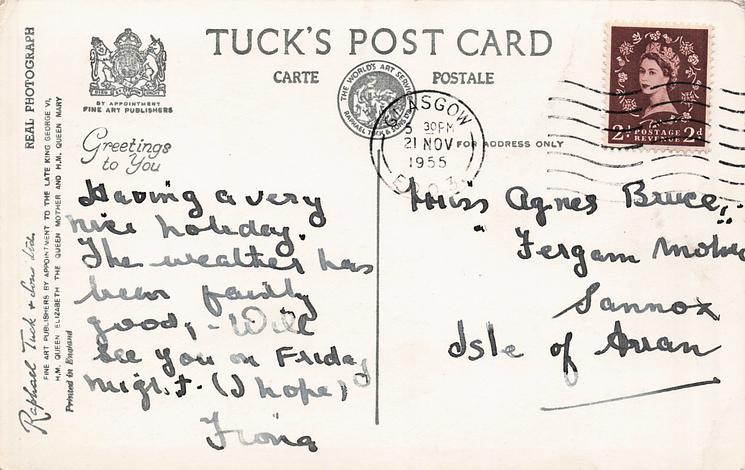 TUCK'S POST CARD
CARTE POSTALE
BY APPOINTMENT
FINE ART PUBLISHERS
THE WORLD'S ART SERVICE
RAPHAEL TUCK & SONS LTD
REAL PHOTOGRAPH
FINE ART PUBLISHERS BY APPOINTMENT TO THE LATE KING GEORGE VI,
H.M. QUEEN ELIZABETH THE QUEEN MOTHER AND H.M. QUEEN MARY
Raphael Tuck & Sons Ltd.
Printed in England
Greetings
to You
GLASGOW
5 30PM
21 NOV
1955
FOR ADDRESS ONLY
2d POSTAGE 2d
REVENUE
Having a very
nice holiday.
The weather has
been fairly
good, - Will
see you on Friday
night. (I hope)
Fiona
Miss Agnes Bruce,
Fergam
Sannox
Isle of Arran